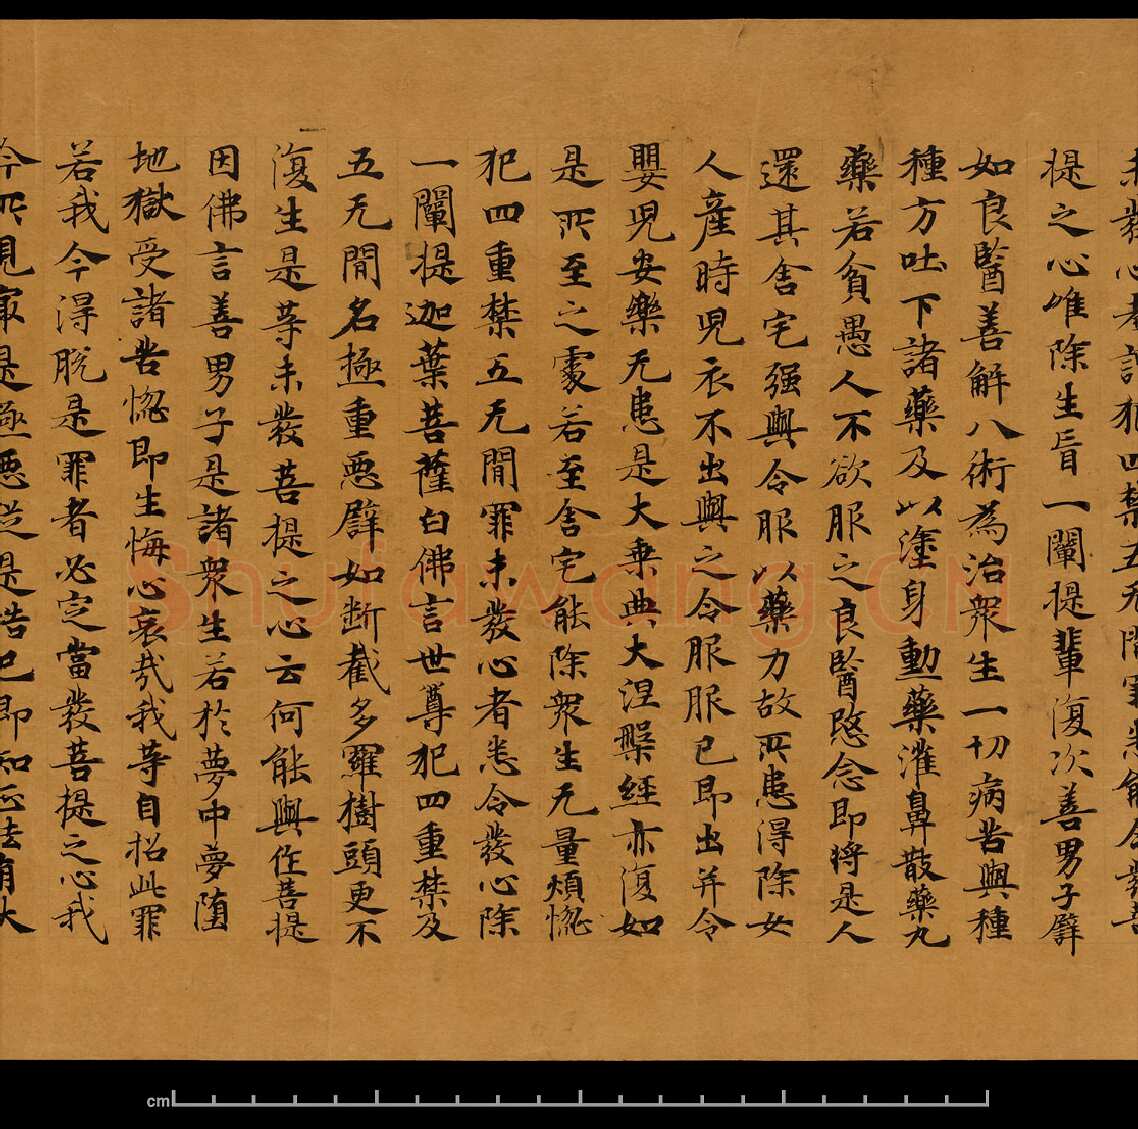 提之心唯除生盲一闡提輩復次善男子譬
如良醫善解八術為治眾生一切病苦與種
種方吐下諸藥及以塗身勳藥灌鼻散藥丸
藥若貧愚人不欲服之良醫愍念即將是人
還其舍宅强與令服以藥力故所患得除女
人産時兒衣不出與之令服服已即出并令
嬰兒安樂无患是大乘典大涅槃經亦復如
是所至之處若至舍宅能除眾生无量煩惱
犯四重禁五无間罪未發心者悉令發心除
一闡提迦葉菩薩白佛言世尊犯四重禁及
五无間名極重惡譬如斷截多羅樹頭更不
復生是等未發菩提之心云何能與作菩提
因佛言善男子是諸眾生若於夢中夢墮
地獄受諸苦惱即生悔心哀哉我等自招此罪
若我今得脫是罪者必定當發菩提之心我
今所見最是極惡從是悟已即知正法有大
Shufawang.CN
cm